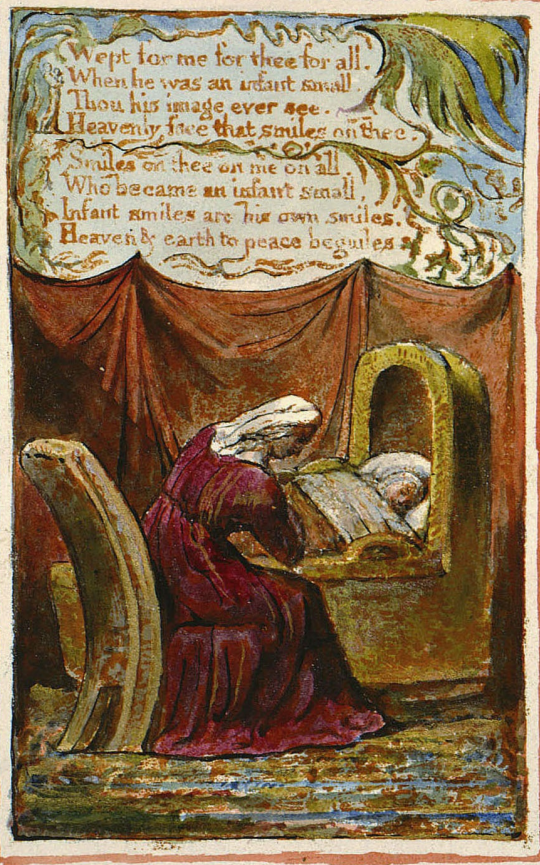 Wept for me for thee for all.
When he was an infant small.
Thou his image ever see.
Heavenly face that smiles on thee.
Smiles on thee on me on all
Who became an infant small,
Infant smiles are his own smiles.
Heaven & earth to peace beguiles